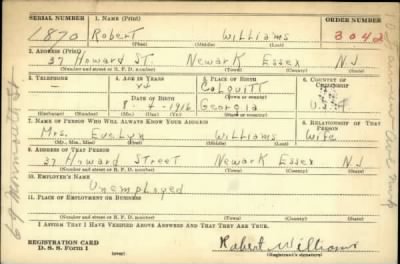 SERIAL NUMBER 1. NAME (Print) ORDER NUMBER
1870 Robert Williams 3042
(First) (Middle) (Last)
2. ADDRESS (Print)
37 Howard ST. Newark Essex NJ
(Number and street or R. F. D. number) (Town) (County) (State)
3. TELEPHONE 4. AGE IN YEARS 5. PLACE OF BIRTH 6. COUNTRY OF CITIZENSHIP
— 24 Colquitt
DATE OF BIRTH (Town or county)
8 - 4 - 1916 Georgia U.S.A
(Mo.) (Day) (Yr.) (State or country)
7. NAME OF PERSON WHO WILL ALWAYS KNOW YOUR ADDRESS 8. RELATIONSHIP OF THAT PERSON
Mrs. Evelyn Williams Wife
(Mr., Mrs., Miss) (First) (Middle) (Last)
9. ADDRESS OF THAT PERSON
37 Howard Street Newark Essex NJ
(Number and street or R. F. D. number) (Town) (County) (State)
10. EMPLOYER'S NAME
Unemployed
11. PLACE OF EMPLOYMENT OR BUSINESS
(Number and street or R. F. D. number) (Town) (County) (State)
I AFFIRM THAT I HAVE VERIFIED ABOVE ANSWERS AND THAT THEY ARE TRUE.
REGISTRATION CARD
D. S. S. Form 1 (over) Robert Williams
(Registrant's signature)